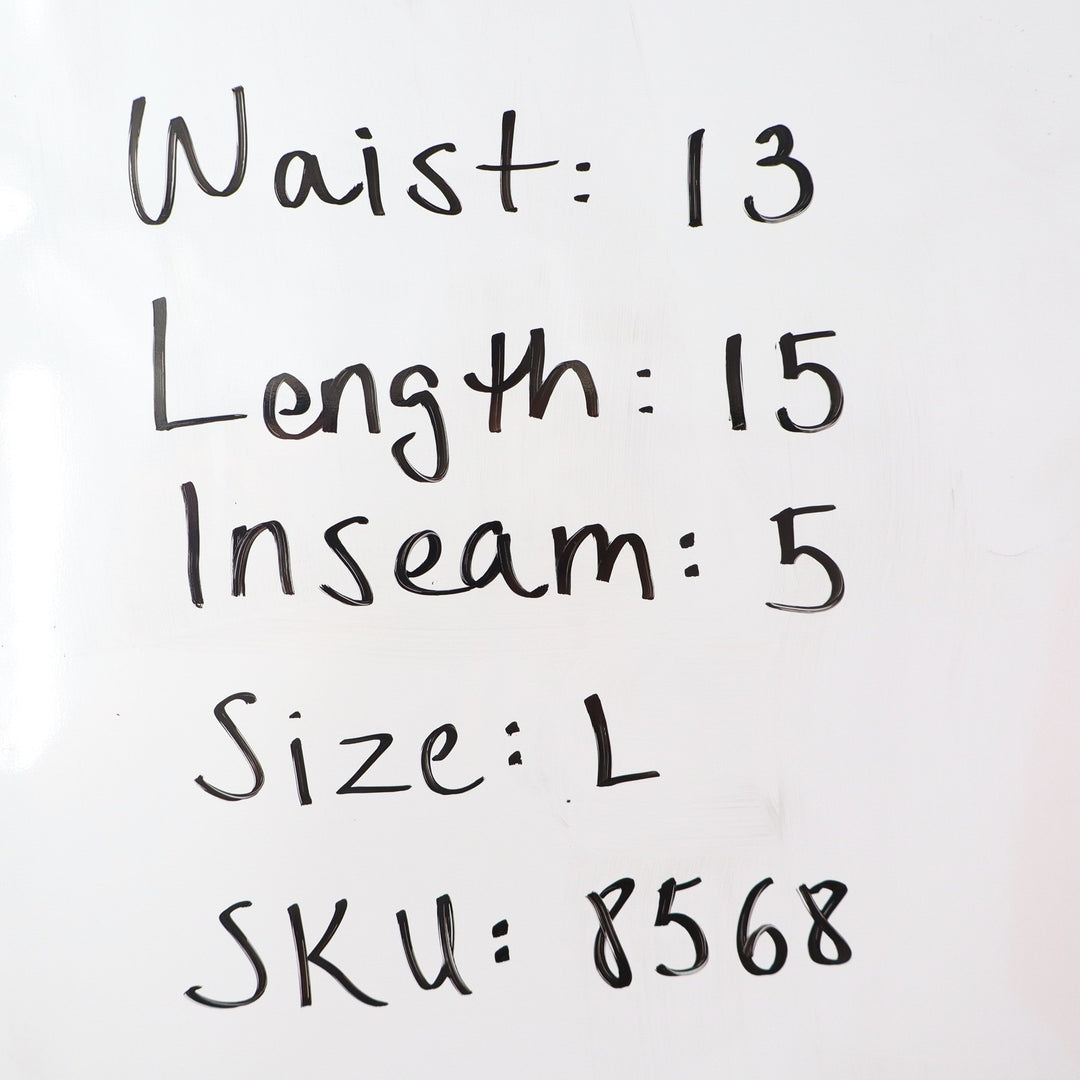 Waist: 13
Length: 15
Inseam: 5
Size: L
SKU: 8568